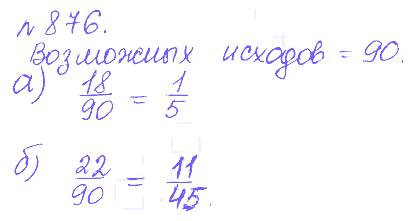 № 876.
Возможных исходов = 90.
а) 18/90 = 1/5
б) 22/90 = 11/45.